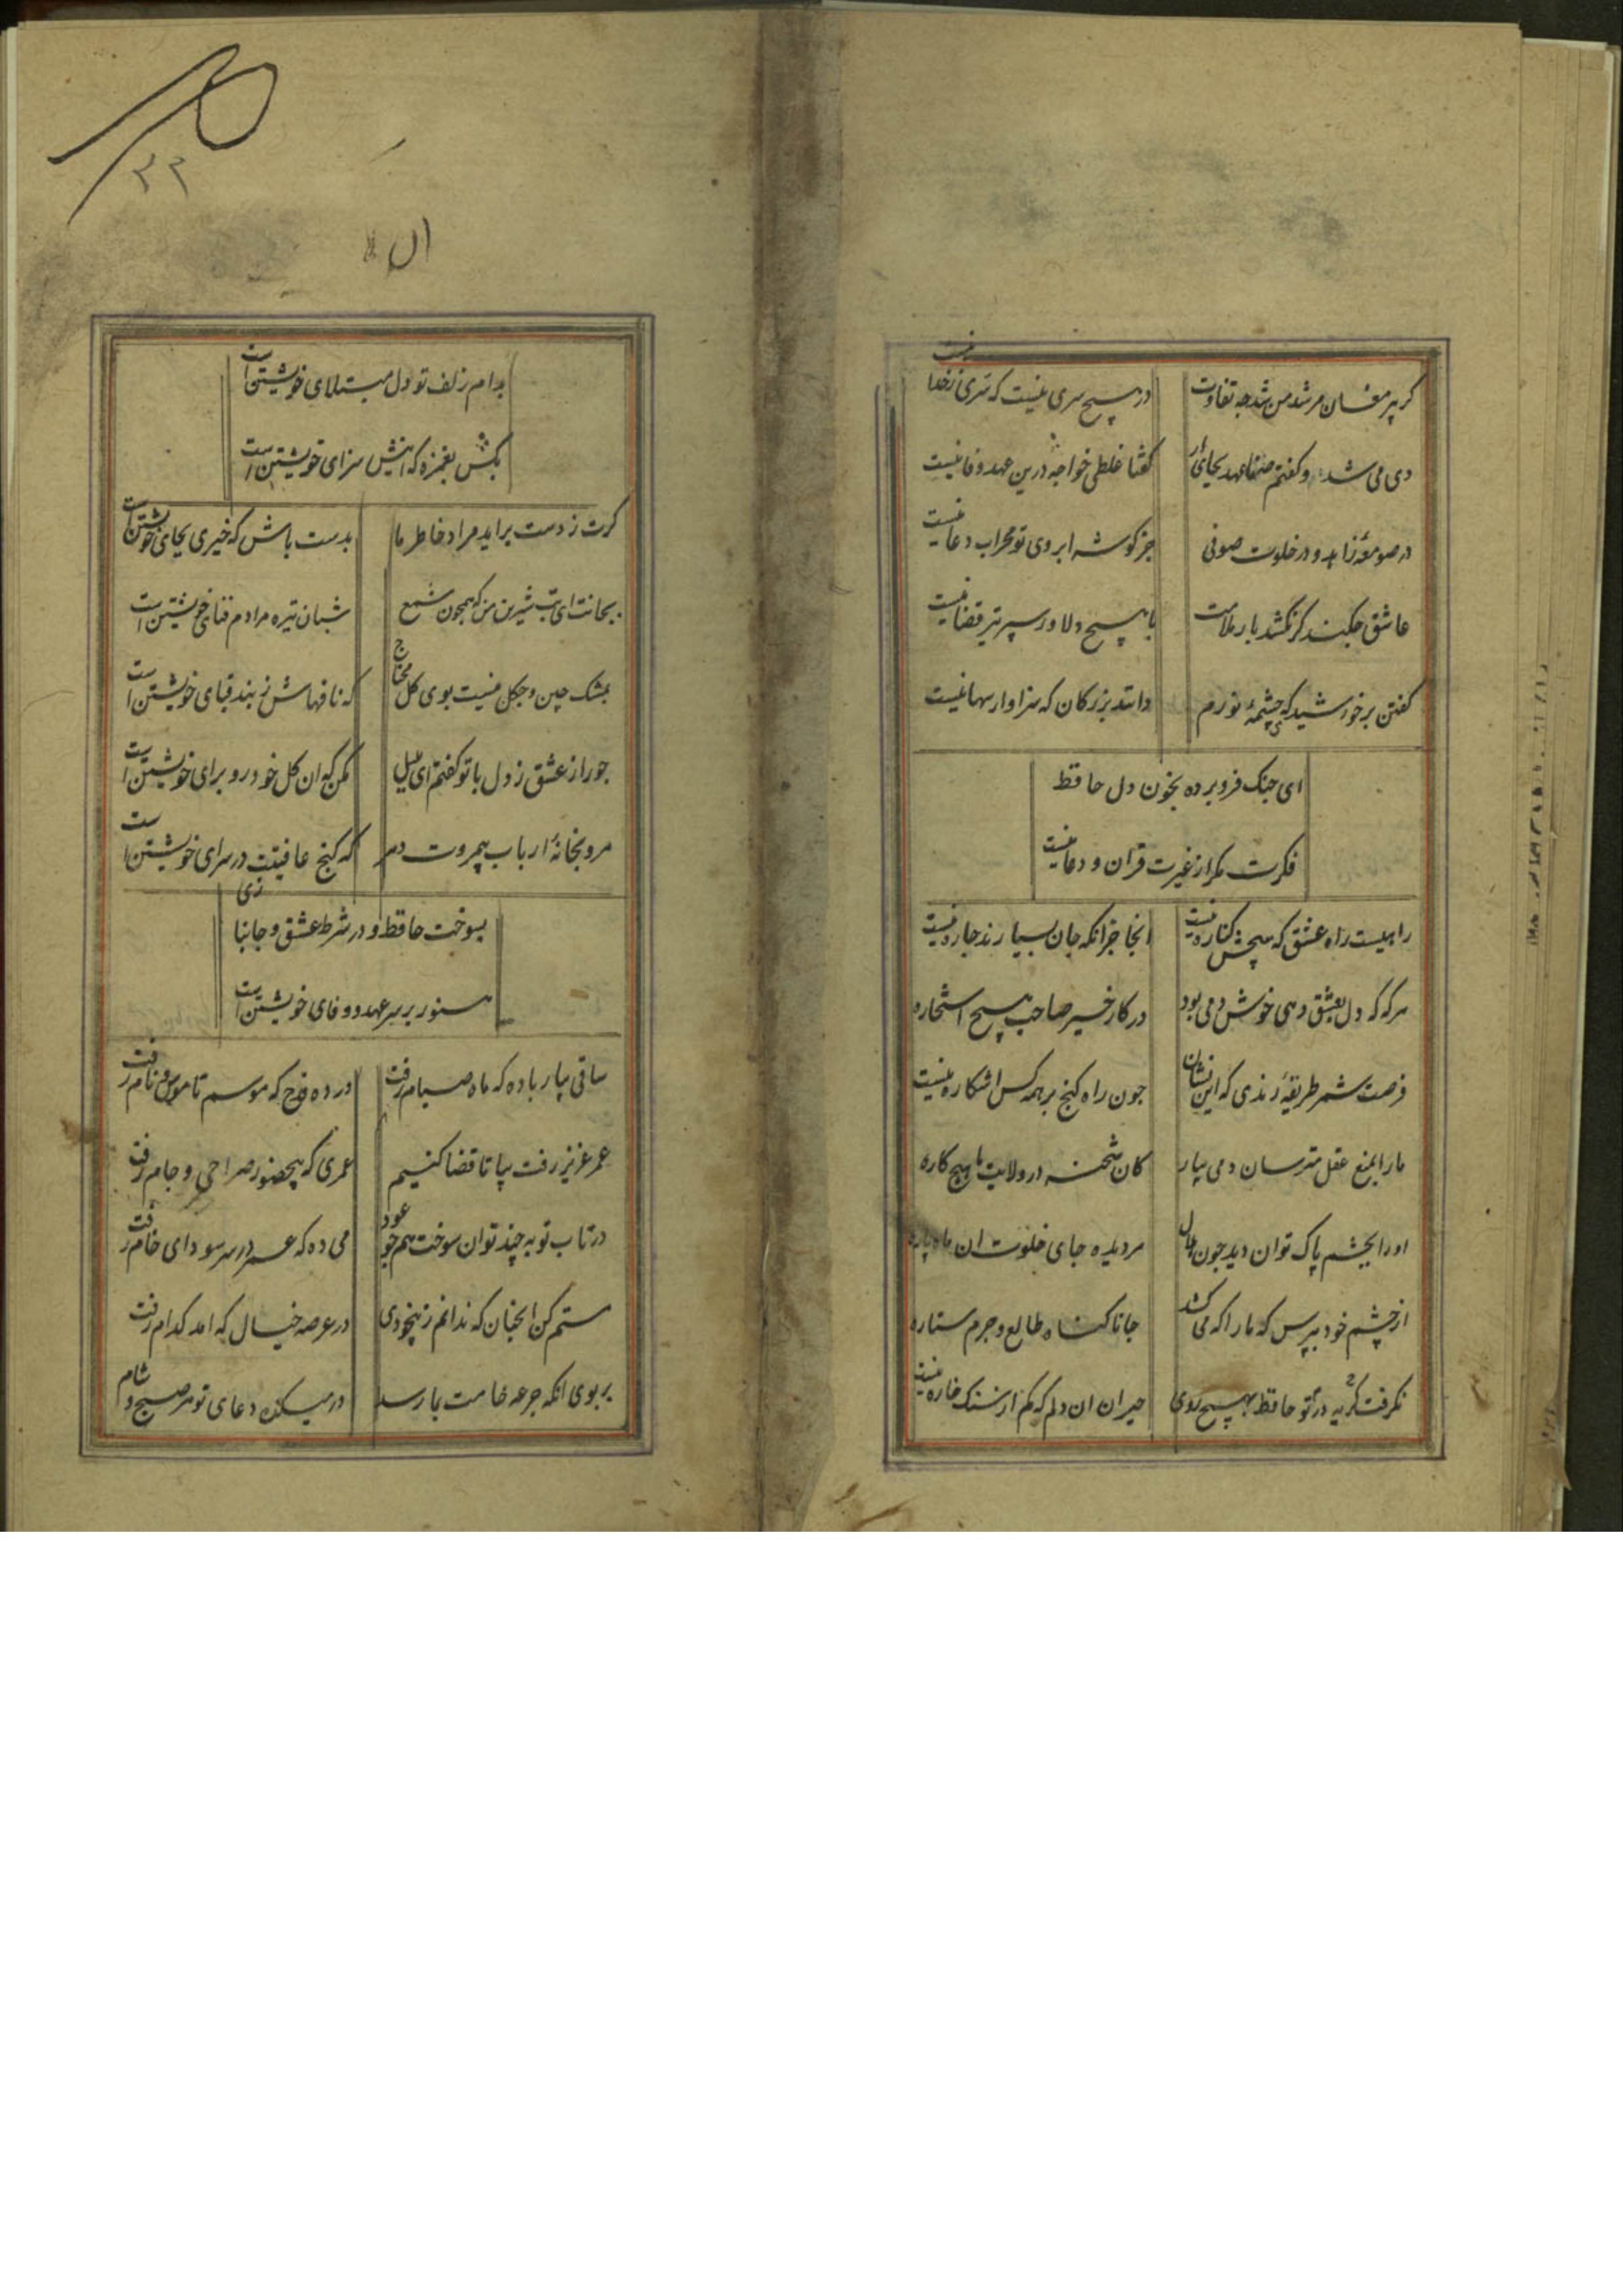 کر پیر مغان مرشد من شد چه تفاوت در هیچ سری نیست که سری ز خدا نیست
دی می شد و کفتم صنما عهد بجای ار کفتا غلطی خواجه درین عهد وفا نیست
در صومعهٔ زاهد و در خلوت صوفی جز کوشه ابروی تو محراب دعا نیست
عاشق چکند کر نکشد بار ملامت با هیچ دلاور سپر تیر قضا نیست
کفتن بر خورشید که چشمهٔ نورم دانند بزرکان که سزاوار سها نیست
ای جنک فرو برده بخون دل حافظ
فکرت مکر از غیرت قران و دعا نیست
راهیست راه عشق که هیچش کناره نیست انجا جز انکه جان بسپارند جاره نیست
هرکه که دل بعشق دهی خوش دمی بود در کار خیر صاحب هیچ استخاره
فرصت شمر طریقهٔ رندی که این نشان جون راه کنج بر همه کس اشکاره نیست
مارا بمنع عقل مترسان و می بیار کان شحنه در ولایت ما هیچ کاره
اورا بچشم پاک توان دید جون هلال هر دیده جای خلوت ان ماه پاره
از چشم خود بپرس که مارا که می کشد جانا کناه طالع و جرم ستاره
نکرفت کریه در تو حافظ بهیچ روی حیران ان دلم که کم از سنک خاره نیست
۳۲
بدام زلف تو دل مبتلای خویشتن است
بکش بغمزه که اینش سزای خویشتن است
کرت ز دست براید مراد خاطر ما بدست باش که خیری بجای خویشتن است
بجانت ای بت شیرین من که همچون شمع شبان تیره مرادم فنای خویشتن است
بمشک چین و جکل نیست بوی کل محتاج که نافهاش ز بند قبای خویشتن است
جو راز عشق ز دل با تو کفتم ای بلبل مکن که ان کل خودرو برای خویشتن است
مرو بخانهٔ ارباب بیمروت دهر که کنج عافیتت در سرای خویشتن است
بسوخت حافظ و در شرط عشق و جانبازی
هنوز بر سر عهد و وفای خویشتن است
ساقی بیار باده که ماه صیام رفت در ده قدح که موسم ناموس و نام رفت
عمر عزیز رفت بیا تا قضا کنیم عمری که بیحضور صراحی و جام رفت
در تاب توبه چند توان سوخت همجو عود می ده که عمر در سر سودای خام رفت
مستم کن انجنان که ندانم ز بیخودی در عرصه خیال که امد کدام رفت
بر بوی انکه جرعه جامت بما رسد در میکده دعای تو هر صبح و شام